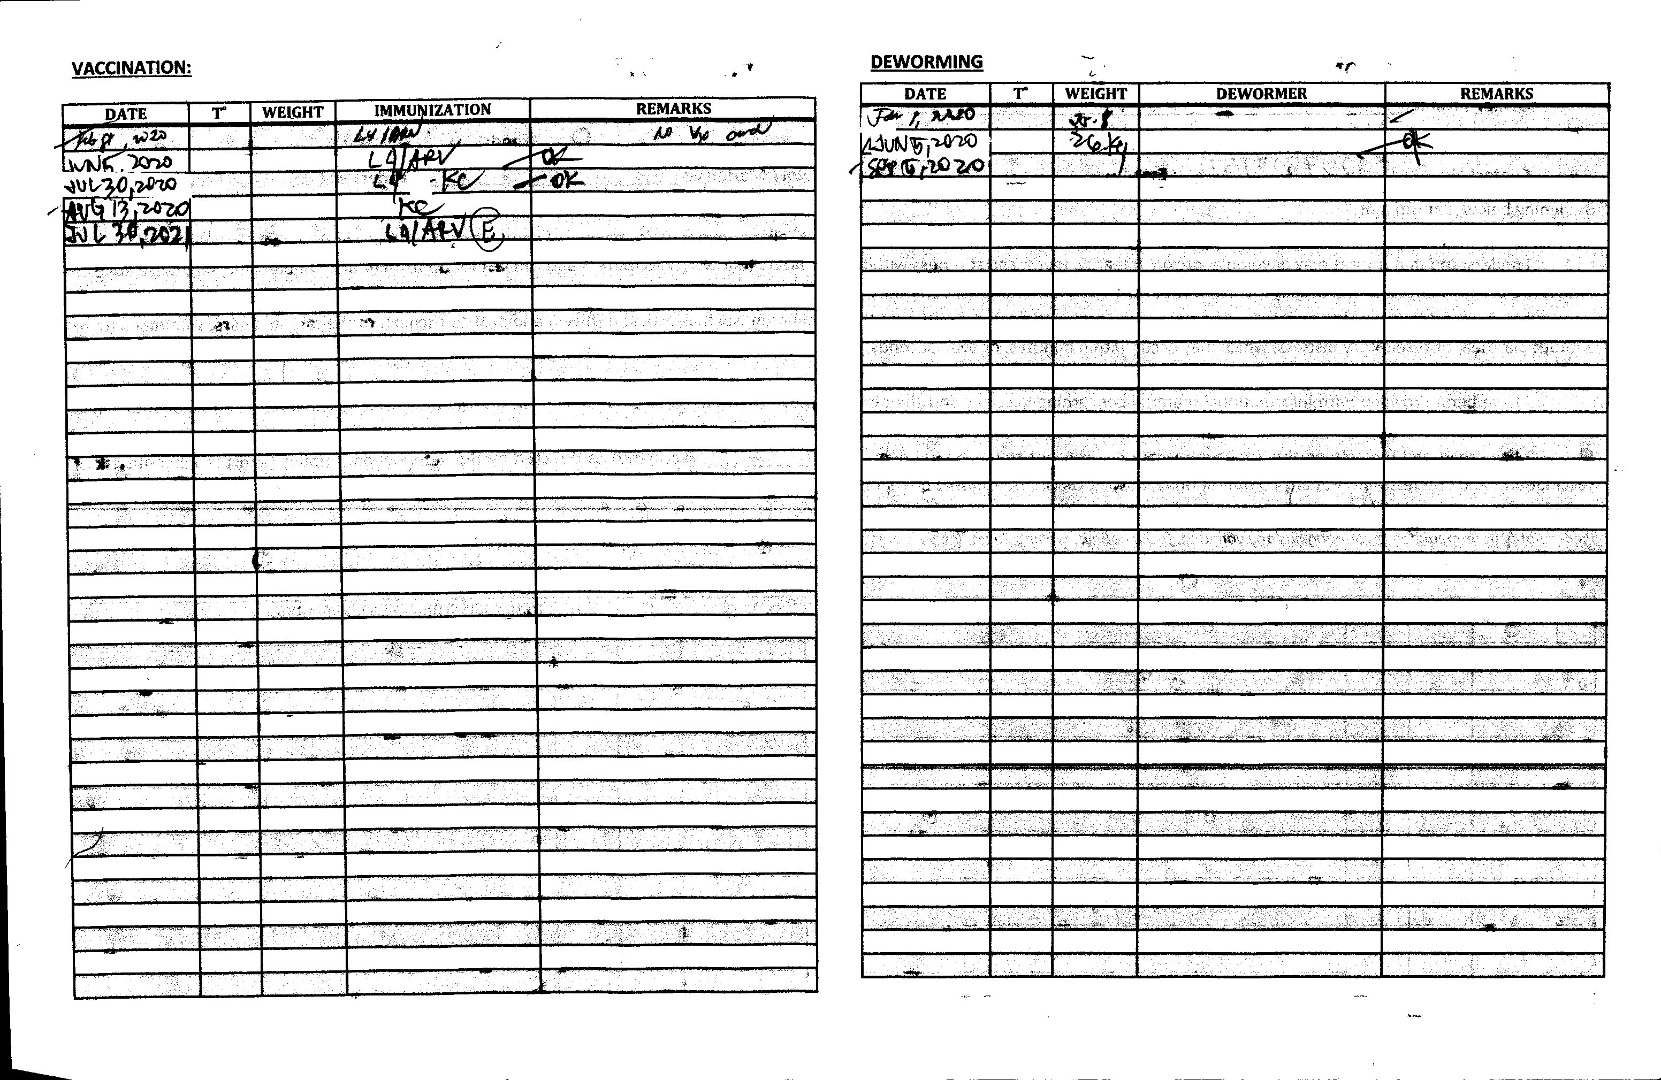 VACCINATION:
DATE T° WEIGHT IMMUNIZATION REMARKS
2020 L4/ARV no
JUN 5, 2020 L4/ARV OK
JUL 30, 2020 L4 - KC OK
AUG 13, 2020 KC
JUL 30, 2021 L4/ARV E
DEWORMING
DATE T° WEIGHT DEWORMER REMARKS
1, 2020
JUN 5, 2020 26 kg OK
SEP 5, 2020